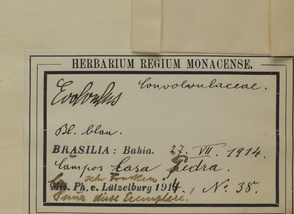 HERBARIUM REGIUM MONACENSE.
Evolvulus Convolvulaceae.
Bl. blau.
BRASILIA: Bahia. 27. VII. 1914.
Campos Casa Pedra.
sehr trocken
Ph. v. Lützelburg 1914, No. 38.
nur diese Exemplare.